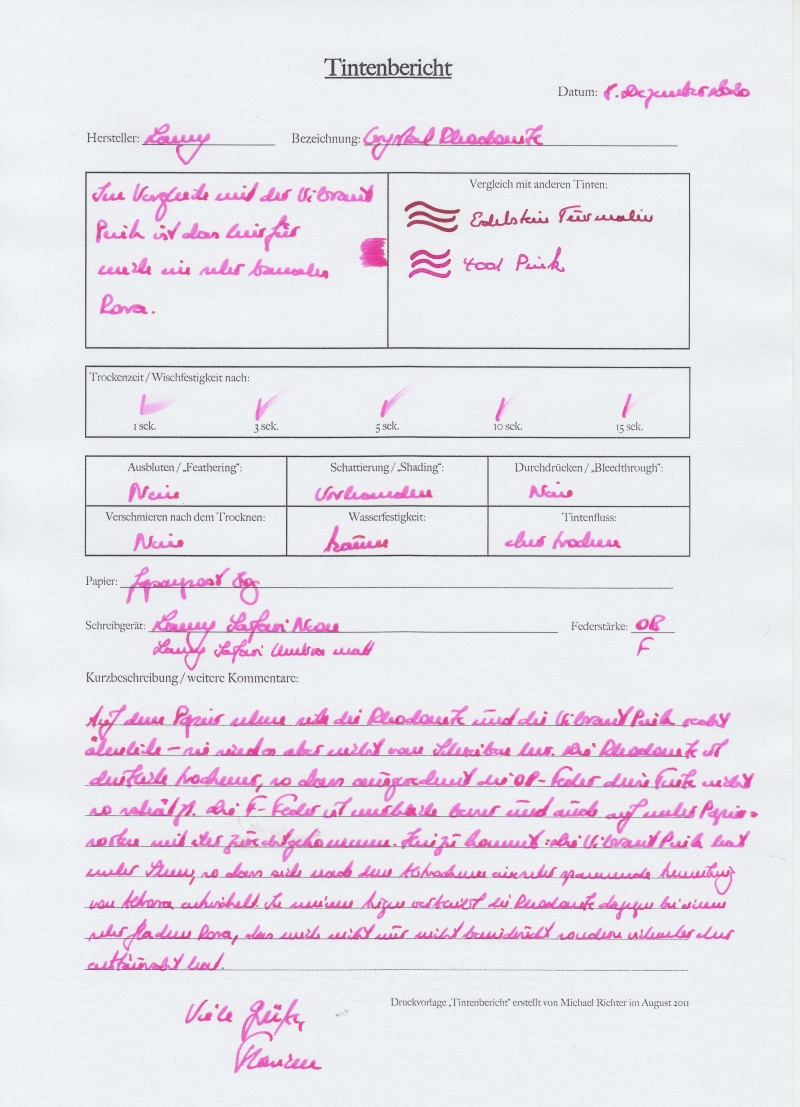 Tintenbericht
Datum: 8. Dezember 2020
Hersteller: Lamy Bezeichnung: Crystal Rhodonite
Im Vergleich mit der Vibrant
Pink ist das hier für
mich ein sehr banales
Rosa.
Vergleich mit anderen Tinten:
Edelstein Turmalin
4001 Pink
Trockenzeit / Wischfestigkeit nach:
1 sek. 3 sek. 5 sek. 10 sek. 15 sek.
Ausbluten / „Feathering": Schattierung / „Shading": Durchdrücken / „Bleedthrough":
Nein Vorhanden Nein
Verschmieren nach dem Trocknen: Wasserfestigkeit: Tintenfluss:
Nein kaum eher trocken
Papier: Japanpost
Schreibgerät: Lamy Safari Federstärke: OB
Lamy Safari Umbra matt F
Kurzbeschreibung / weitere Kommentare:
Auf dem Papier sehen sich die Rhodonite und die Vibrant Pink recht
ähnlich – sie sind es aber nicht vom Schreiben her. Die Rhodonite ist
deutlich trockener, so dass ausgerechnet die OB-Feder diese Tinte nicht
so schätzt. Die F-Feder ist merklich besser und auch auf mehr Papier-
sorten mit ihr zurechtgekommen. Hinzu kommt: die Vibrant Pink hat
mehr Sheen, so dass sich nach dem Abtrocknen eine sehr spannende
von entwickelt. In meinen Augen verbleibt die Rhodonite dagegen bei einem
sehr flachen Rosa, das mich nicht nur nicht beeindruckt sondern vielmehr eher
enttäuscht hat.
Viele Grüße
Druckvorlage „Tintenbericht" erstellt von Michael Richter im August 2011